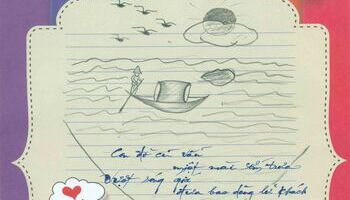 Con đò cũ vẫn
một mái sớm trưa
Vượt sóng gió
đưa bao dòng lũ khách